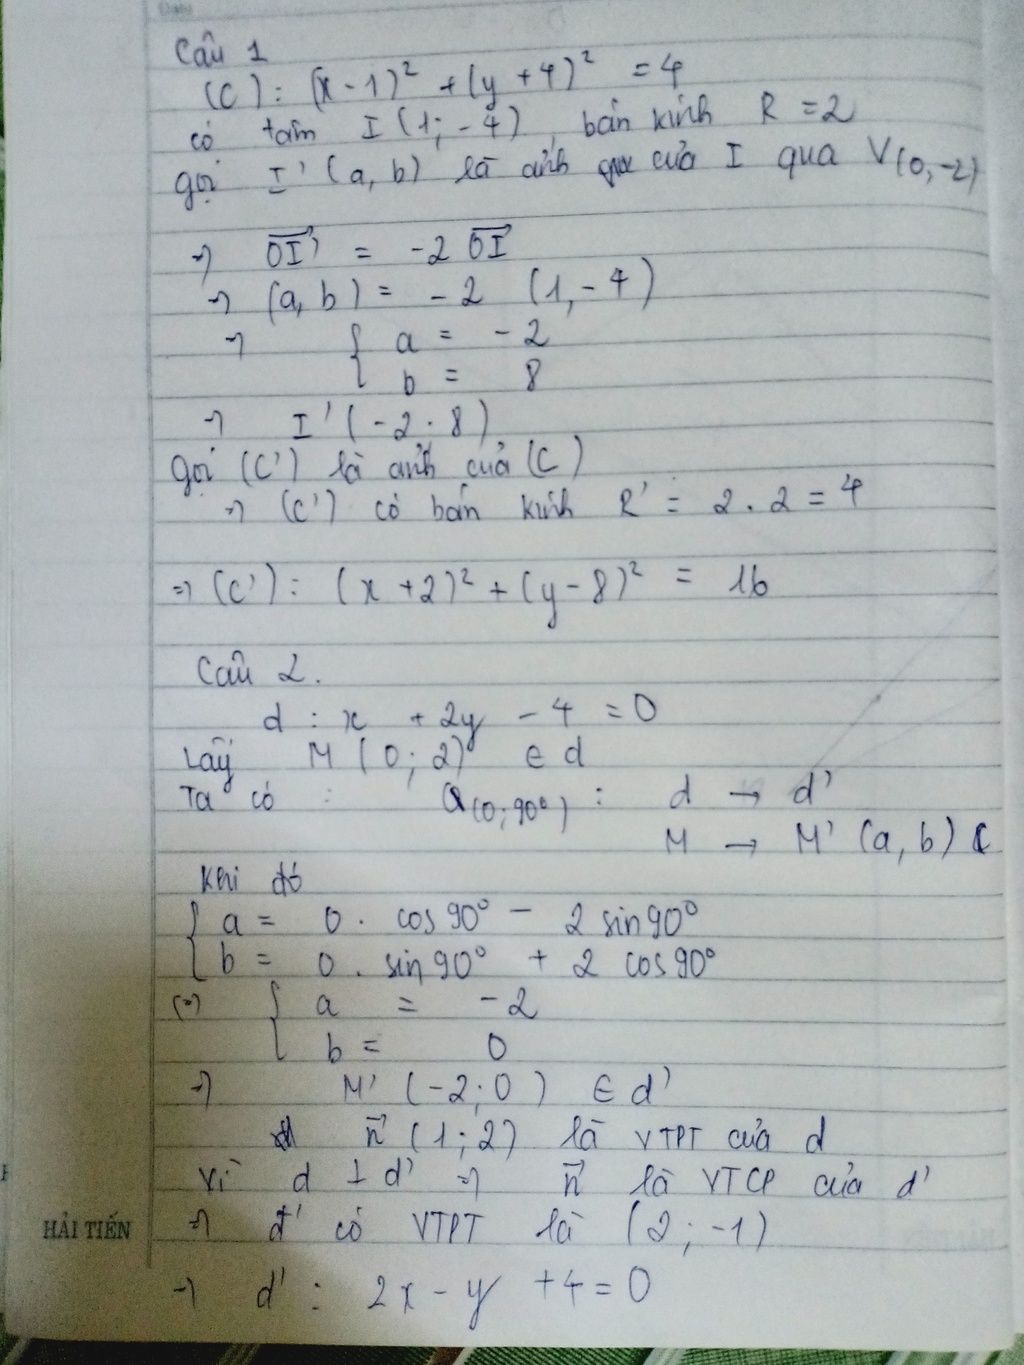 Câu 1
(C): (x-1)² + (y+4)² = 4
có tâm I(1;-4), bán kính R = 2
gọi I'(a,b) là ảnh của I qua V(0,-2)
=> OI' = -2 OI
=> (a,b) = -2 (1,-4)
=> { a = -2
b = 8
=> I'(-2.8)
gọi (C') là ảnh của (C)
=> (C') có bán kính R' = 2.2 = 4
=> (C'): (x+2)² + (y-8)² = 16
Câu 2.
d : x + 2y - 4 = 0
Lấy M(0;2) ∈ d
Ta có : Q(0;90°) : d → d'
M → M'(a,b)
Khi đó
{ a = 0. cos90° - 2 sin90°
b = 0. sin90° + 2 cos90°
(=) { a = -2
b = 0
=> M'(-2;0) ∈ d'
n⃗(1;2) là VTPT của d
Vì d ⊥ d' => n⃗ là VTCP của d'
HẢI TIẾN
=> d' có VTPT là (2;-1)
=> d' : 2x - y + 4 = 0